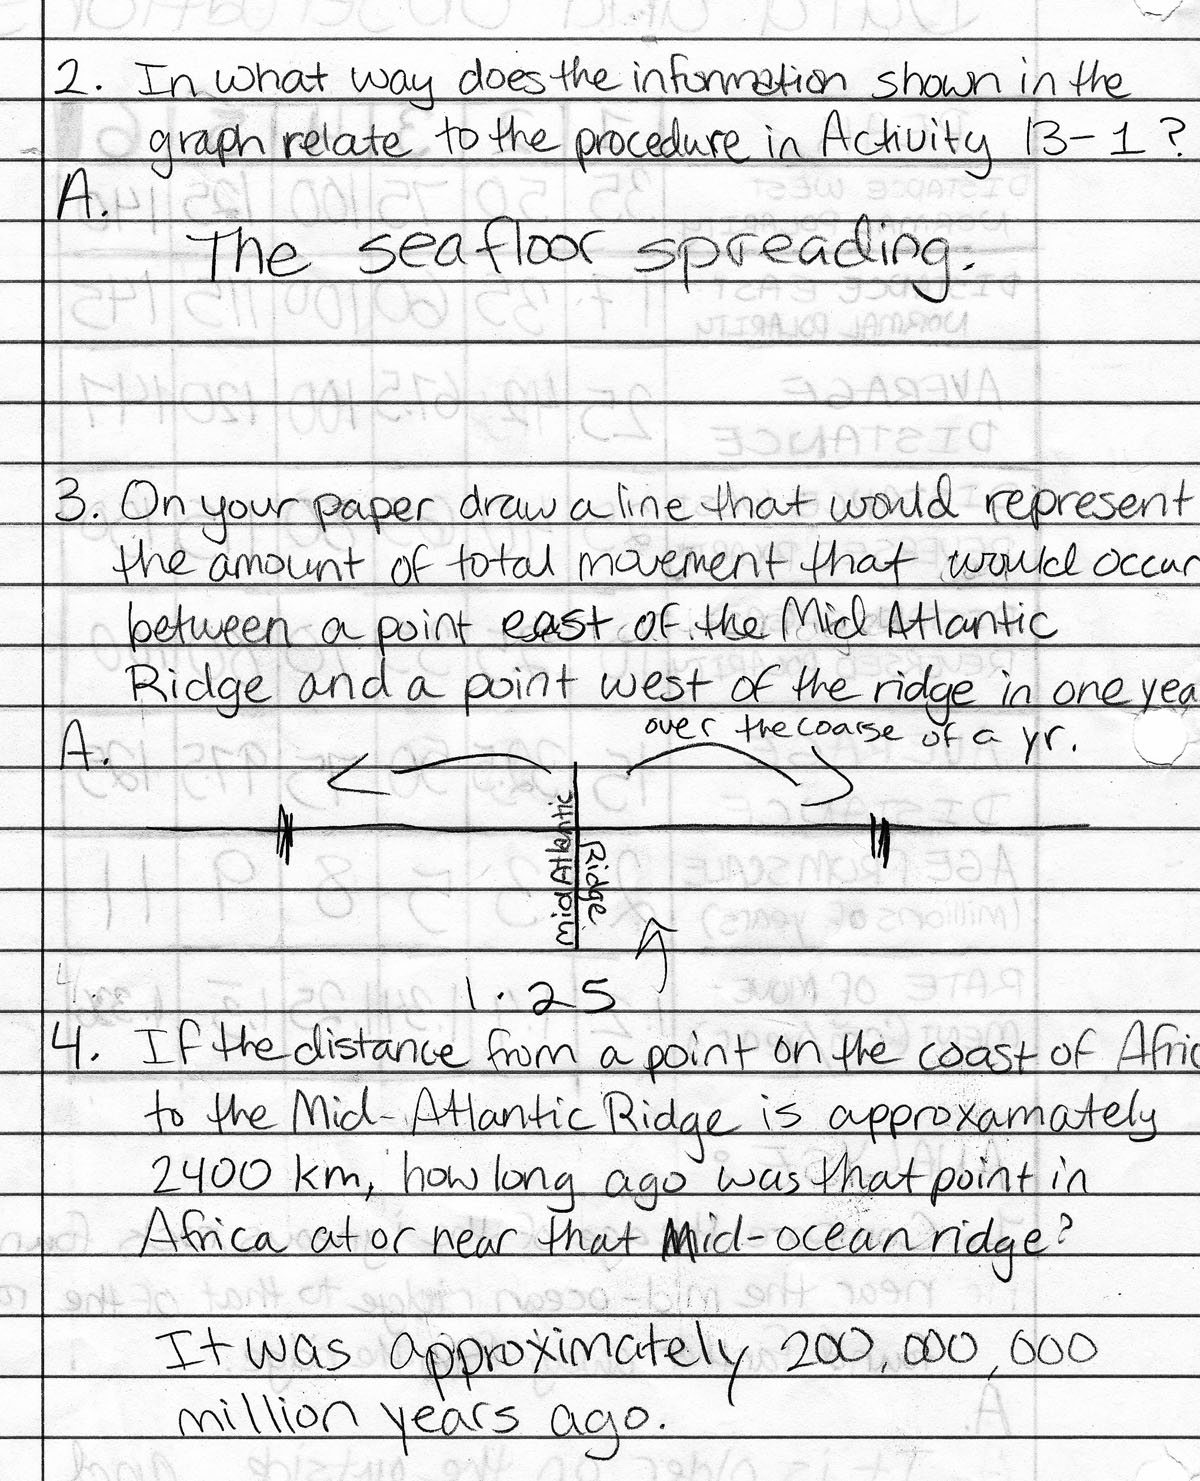 2. In what way does the information shown in the
graph relate to the procedure in Activity 13-1?
A.
The seafloor spreading.
3. On your paper draw a line that would represent
the amount of total movement that would occur
between a point east of the Mid Atlantic
Ridge and a point west of the ridge in one yea
over the coarse of a yr.
A.
mid Atlantic
Ridge
1.25
4. If the distance from a point on the coast of Afric
to the Mid-Atlantic Ridge is approxamately
2400 km, how long ago was that point in
Africa at or near that Mid-ocean ridge?
It was approximately 200,000,000
million years ago.